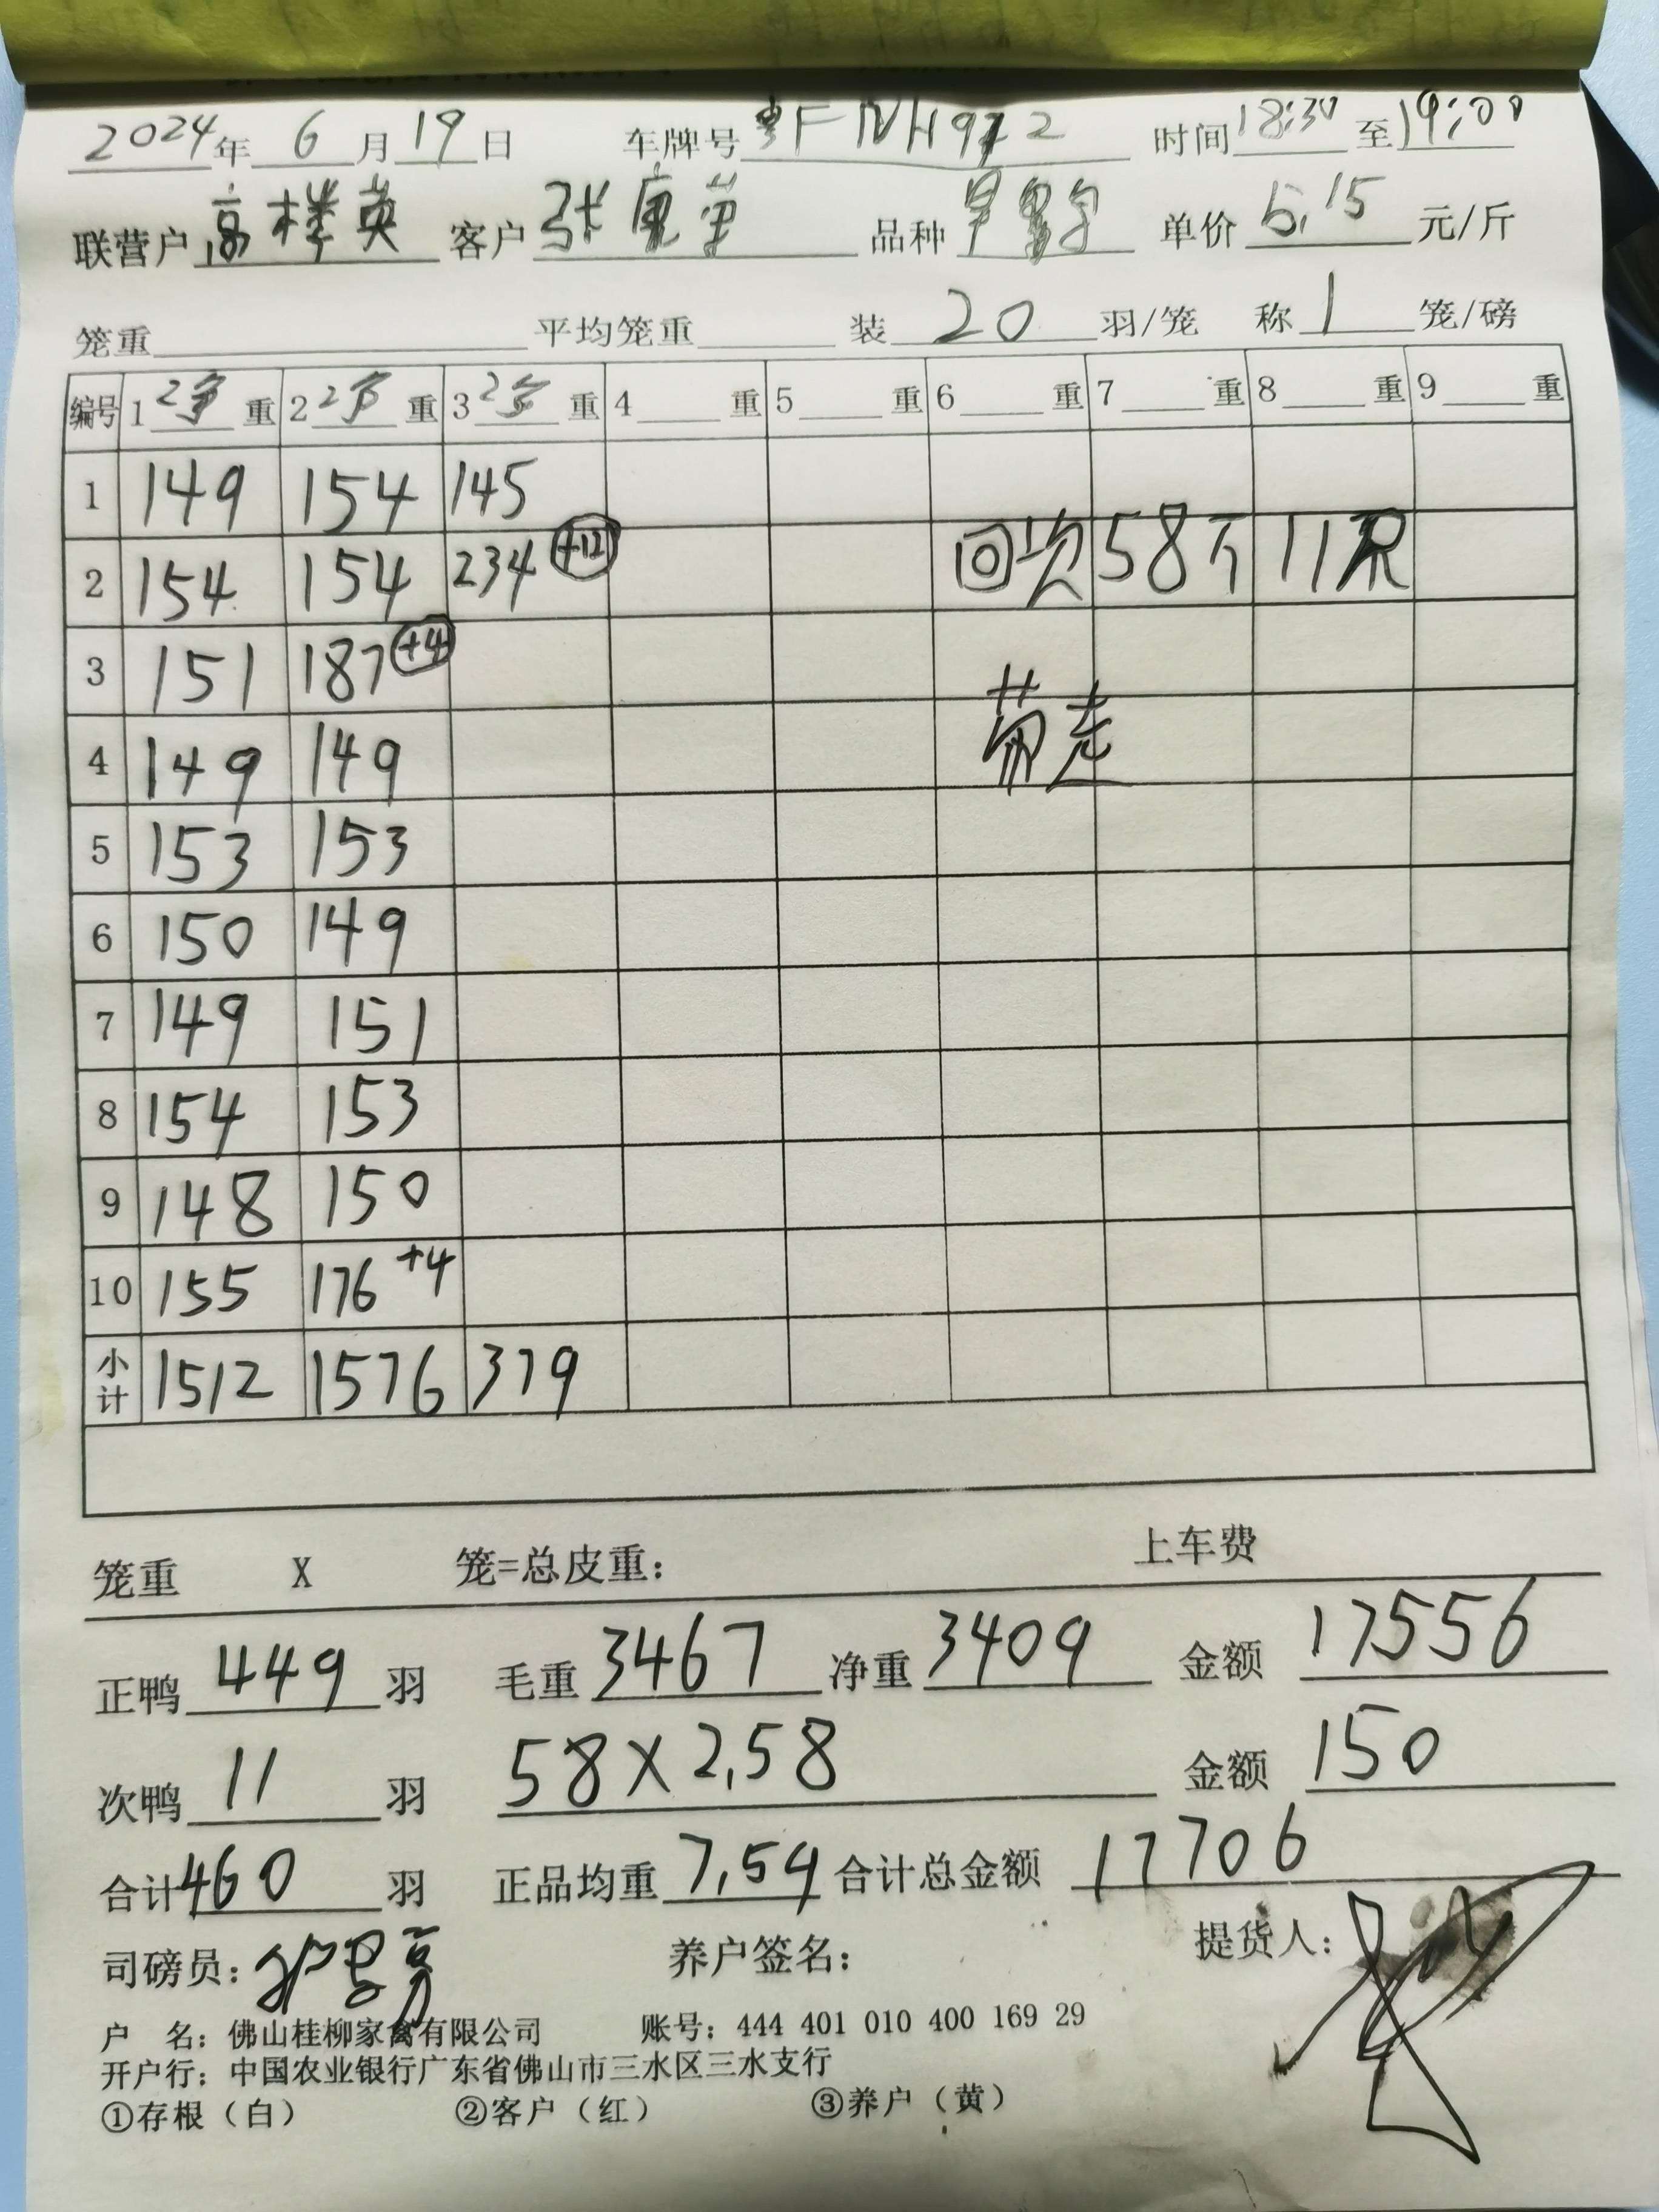 2024年 6 月 19 日 车牌号 粤F NH972 时间 18:30 至 19:00
联营户 高楼英 客户 张 品种 单价 5.15 元/斤
笼重 平均笼重 装 20 羽/笼 称 1 笼/磅
编号 1 净 重 2 净 重 3 净 重 4 重 5 重 6 重 7 重 8 重 9 重
1 149 154 145
2 154 154 234 +12 回次 58斤 11只
3 151 187 +4
4 149 149 走
5 153 153
6 150 149
7 149 151
8 154 153
9 148 150
10 155 176 +4
小计 1512 1576 379
笼重 X 笼=总皮重: 上车费
正鸭 449 羽 毛重 3467 净重 3409 金额 17556
次鸭 11 羽 58×2.58 金额 150
合计 460 羽 正品均重 7.59 合计总金额 17706
司磅员: 养户签名: 提货人:
户 名: 佛山桂柳家禽有限公司 账号: 444 401 010 400 169 29
开户行: 中国农业银行广东省佛山市三水区三水支行
①存根（白） ②客户（红） ③养户（黄）